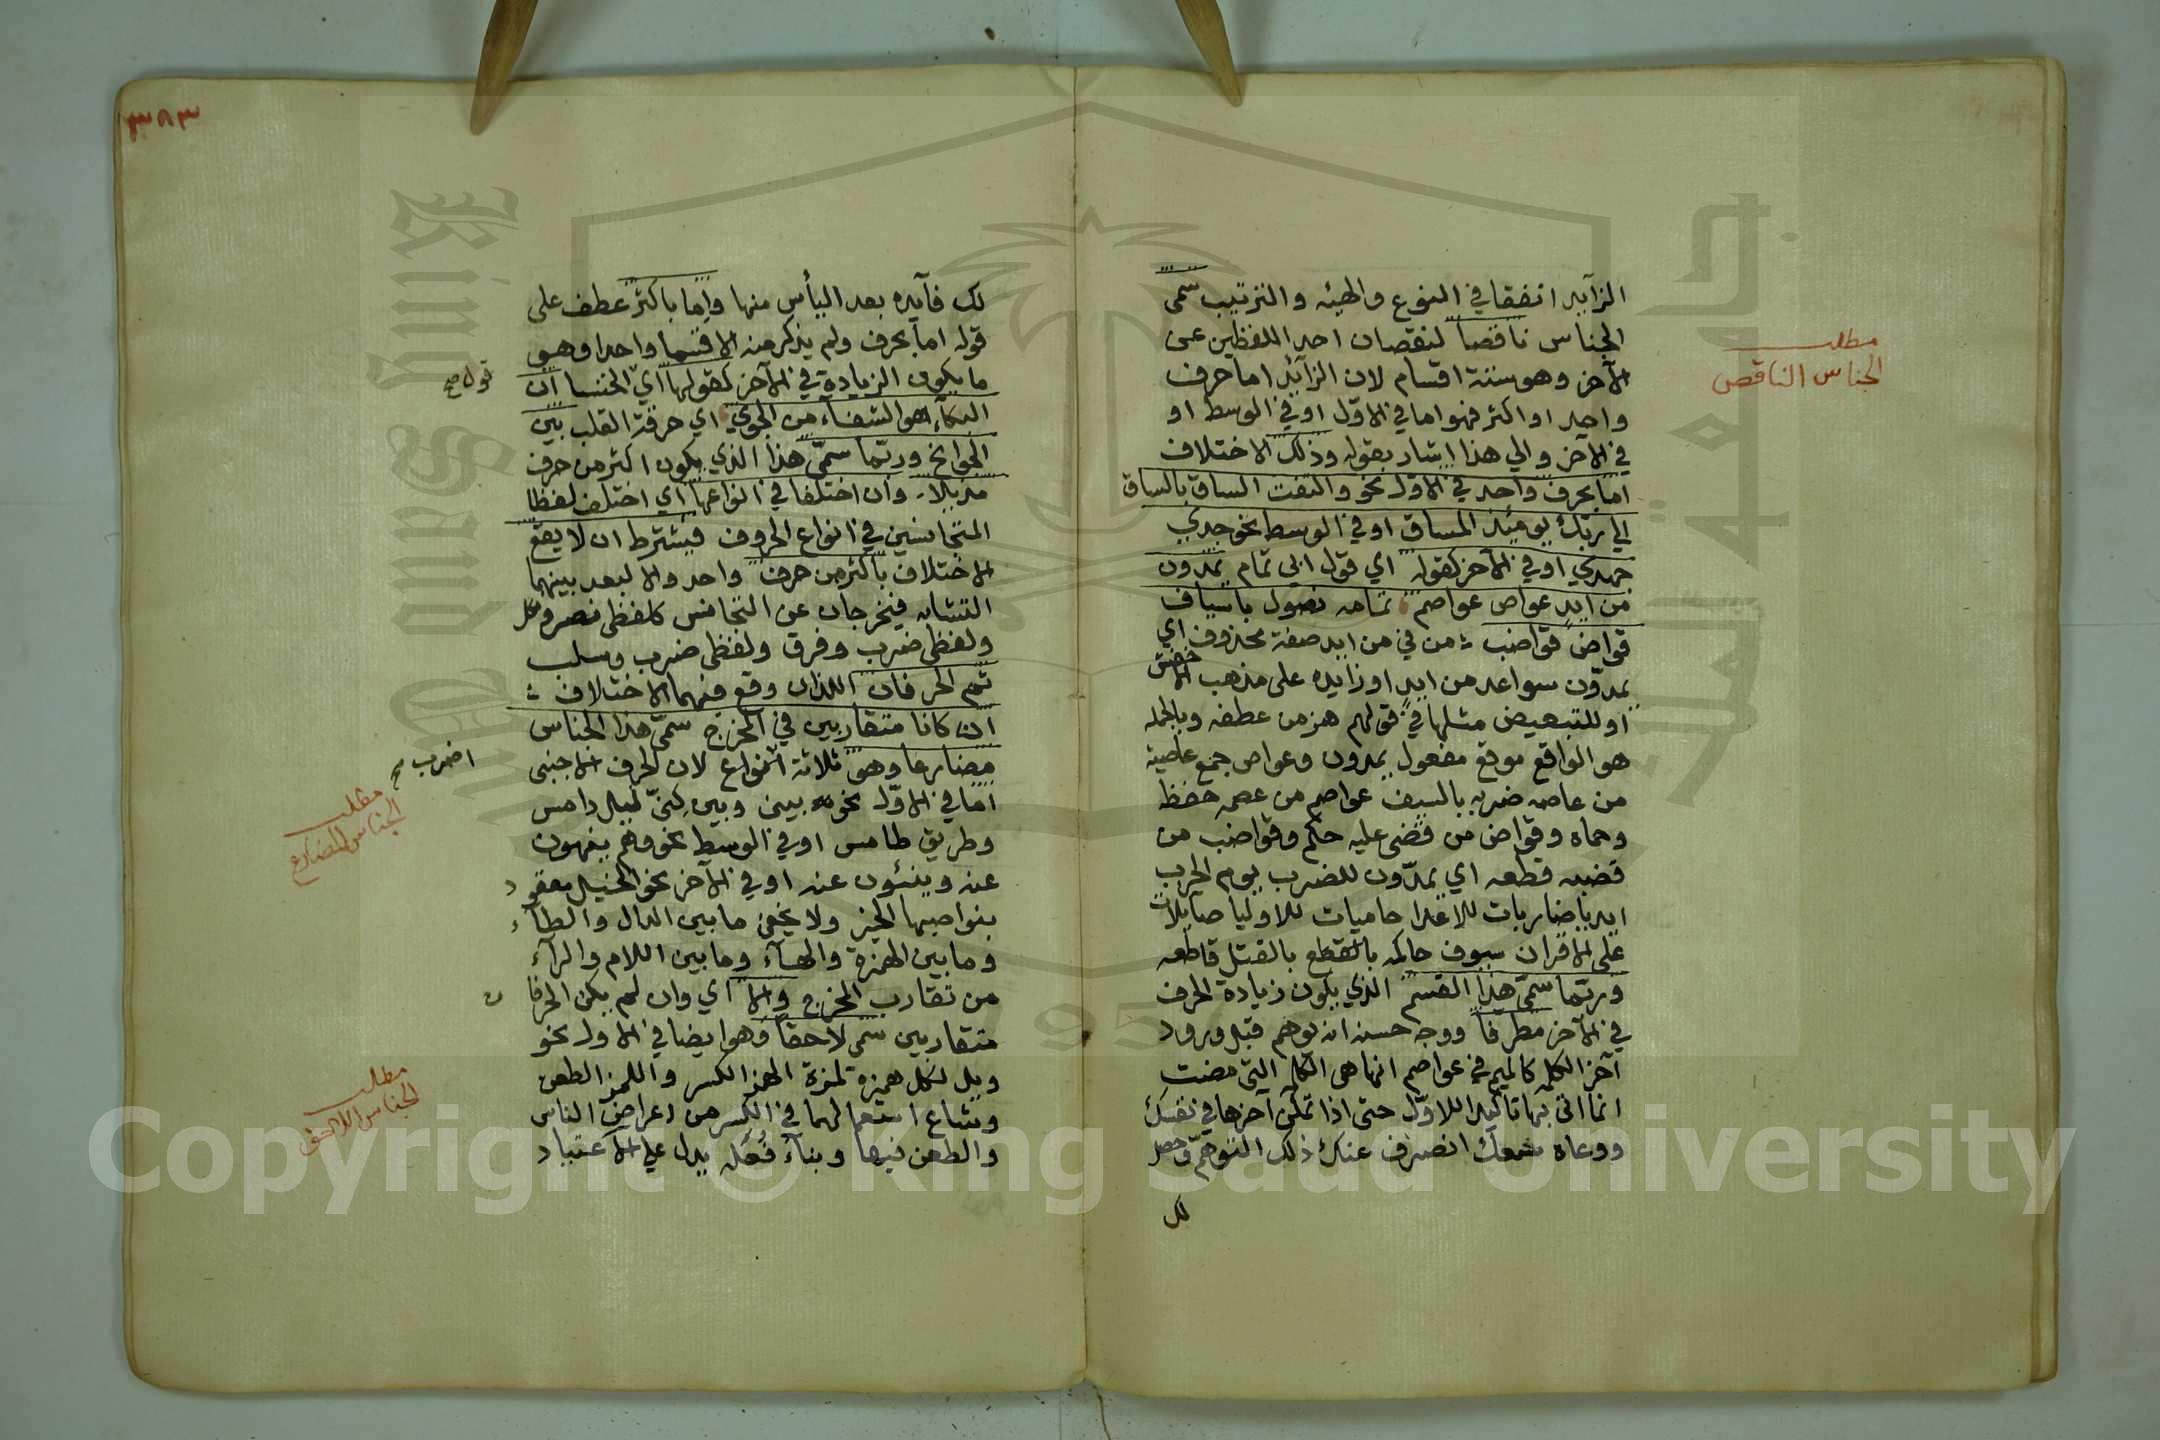 الزآيد اتفقا في النوع والهيئه والترتيب سمى
الجناس ناقصا لنقصان احد اللفظين عن
الآخر وهو ستة اقسام لان الزآيد اما حرف
واحد او اكثر فهو اما في الاوّل او في الوسط او
في الآخر والي هذا اشار بقوله وذلك الاختلاف
اما بحرف واحد في الاوّل نحو والتفت الساق بالساق
الي ربك يومئذ المساق او في الوسط نحو جدي
جهدي او في الآخر كقوله اي قول ابي تمام يمدون
من ايدٍ عواصٍ عواصم تمامه تصول باسياف
قواض قواضب من في من ايد صفة محذوف اي
يمدّون سواعد من ايدٍ او زايده على مذهب الاخفش
او للتبعيض مثلها في قولهم هز من عطفه وبالجمله
هو الواقع موقع مفعول يمدون وعواص جمع عاصية
من عاصه ضربه بالسيف عواصم من عصمه حفظه
وحماه وقواض من قضى عليه حكم وقواضب من
قضبه قطعه اي يمدّون للضرب يوم الحرب
ايديا ضاربات للاعدا حاميات للاوليا صآيلات
على الاقران سيوف حاكمه بالقتل قاطعه
وربما سمّى هذا القسم الذي يكون زيادة الحرف
في الآخر مطرفا ووجه حسنه انه توهم قبل ورود
آخر الكلمه كالميم في عواصم انها هى الكلمه التى مضت
انما اتى بها تاكيدا للاوّل حتى اذا تمكن آخرها في نفسك
ووعاه سمعك انصرف عنك ذلك التوهّم وحصل
لك
مطلب
الجناس الناقص
٣٨٣
لك فآيده بعد اليأس منها واما باكثر عطف على
قوله اما بحرف ولم يذكر منه الا قسما واحدا وهو
ما يكون الزيادة في الآخر كقولها اي الخنسا ان
البكآء هو الشفآء من الجوي اي حرقة القلب بين
الجوانح وربّما سمّى هذا الذي يكون اكثر من حرف
مذيلا وان اختلفا في انواعها اي اختلف لفظا
المتجانسين في انواع الحروف فيشترط ان لا يقع
الاختلاف باكثر من حرف واحد والا لبعد بينهما
التشابه فيخرجان عن التجانس كلفظى نصر ونكل
ولفظى ضرب وفرق ولفظى ضرب وسلب
ثم الحرفان اللذان وقع فيهما الاختلاف
ان كانا متقاربين في المخرج سمّى هذا الجناس
مضارعا وهو ثلاثة انواع لان الحرف الاجنبى
اما في الاوّل نحو بينى وبين كِنّى ليل دامس
وطريق طامس او في الوسط نحو وهم ينهون
عنه وينئون عنه او في الآخر نحو الخيل معقود
بنواصيها الخير ولا يخفى ما بين الدال والطآء
وما بين الهمزة والهآء وما بين اللام والرآء
من تقارب المخرج والا اي وان لم يكن الحرفان
متقاربين سمى لاحقا وهو ايضا في الاول نحو
ويل لكل همزه لمزة الهمز الكسر واللمز الطعن
وشاع استعمالهما في الكسر من اعراض الناس
والطعن فيها وبنآء فُعَلَه يدل علي الاعتياد
قول صح
اضرب صح
مطلب
الجناس المضارع
مطلب
الجناس اللاحق
Copyright © King Saud University
King Saud University
جامعة الملك سعود
1957